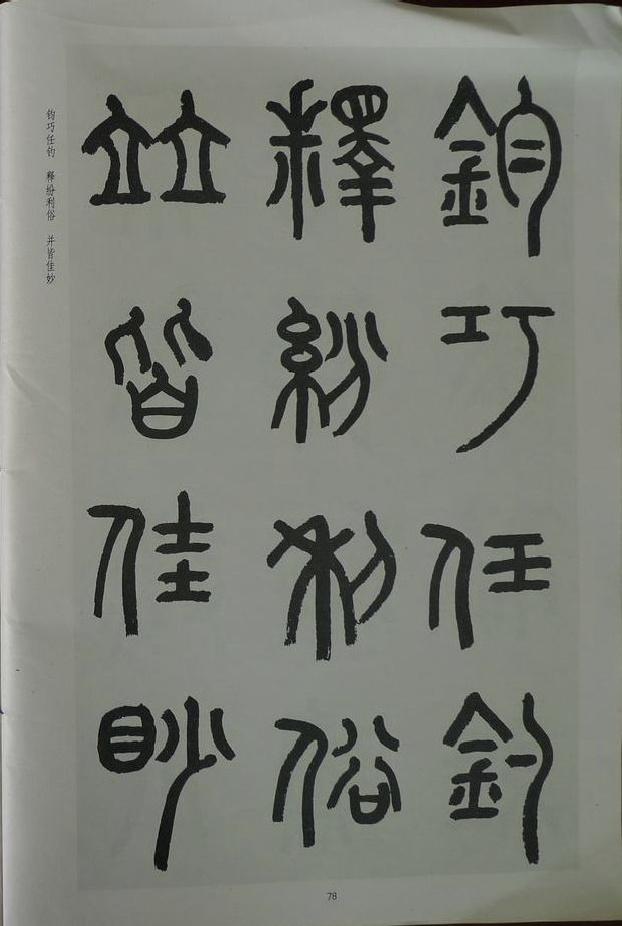 鈞巧任釣
釋紛利俗
竝皆佳眇
钧巧任钓 释纷利俗 并皆佳妙
78